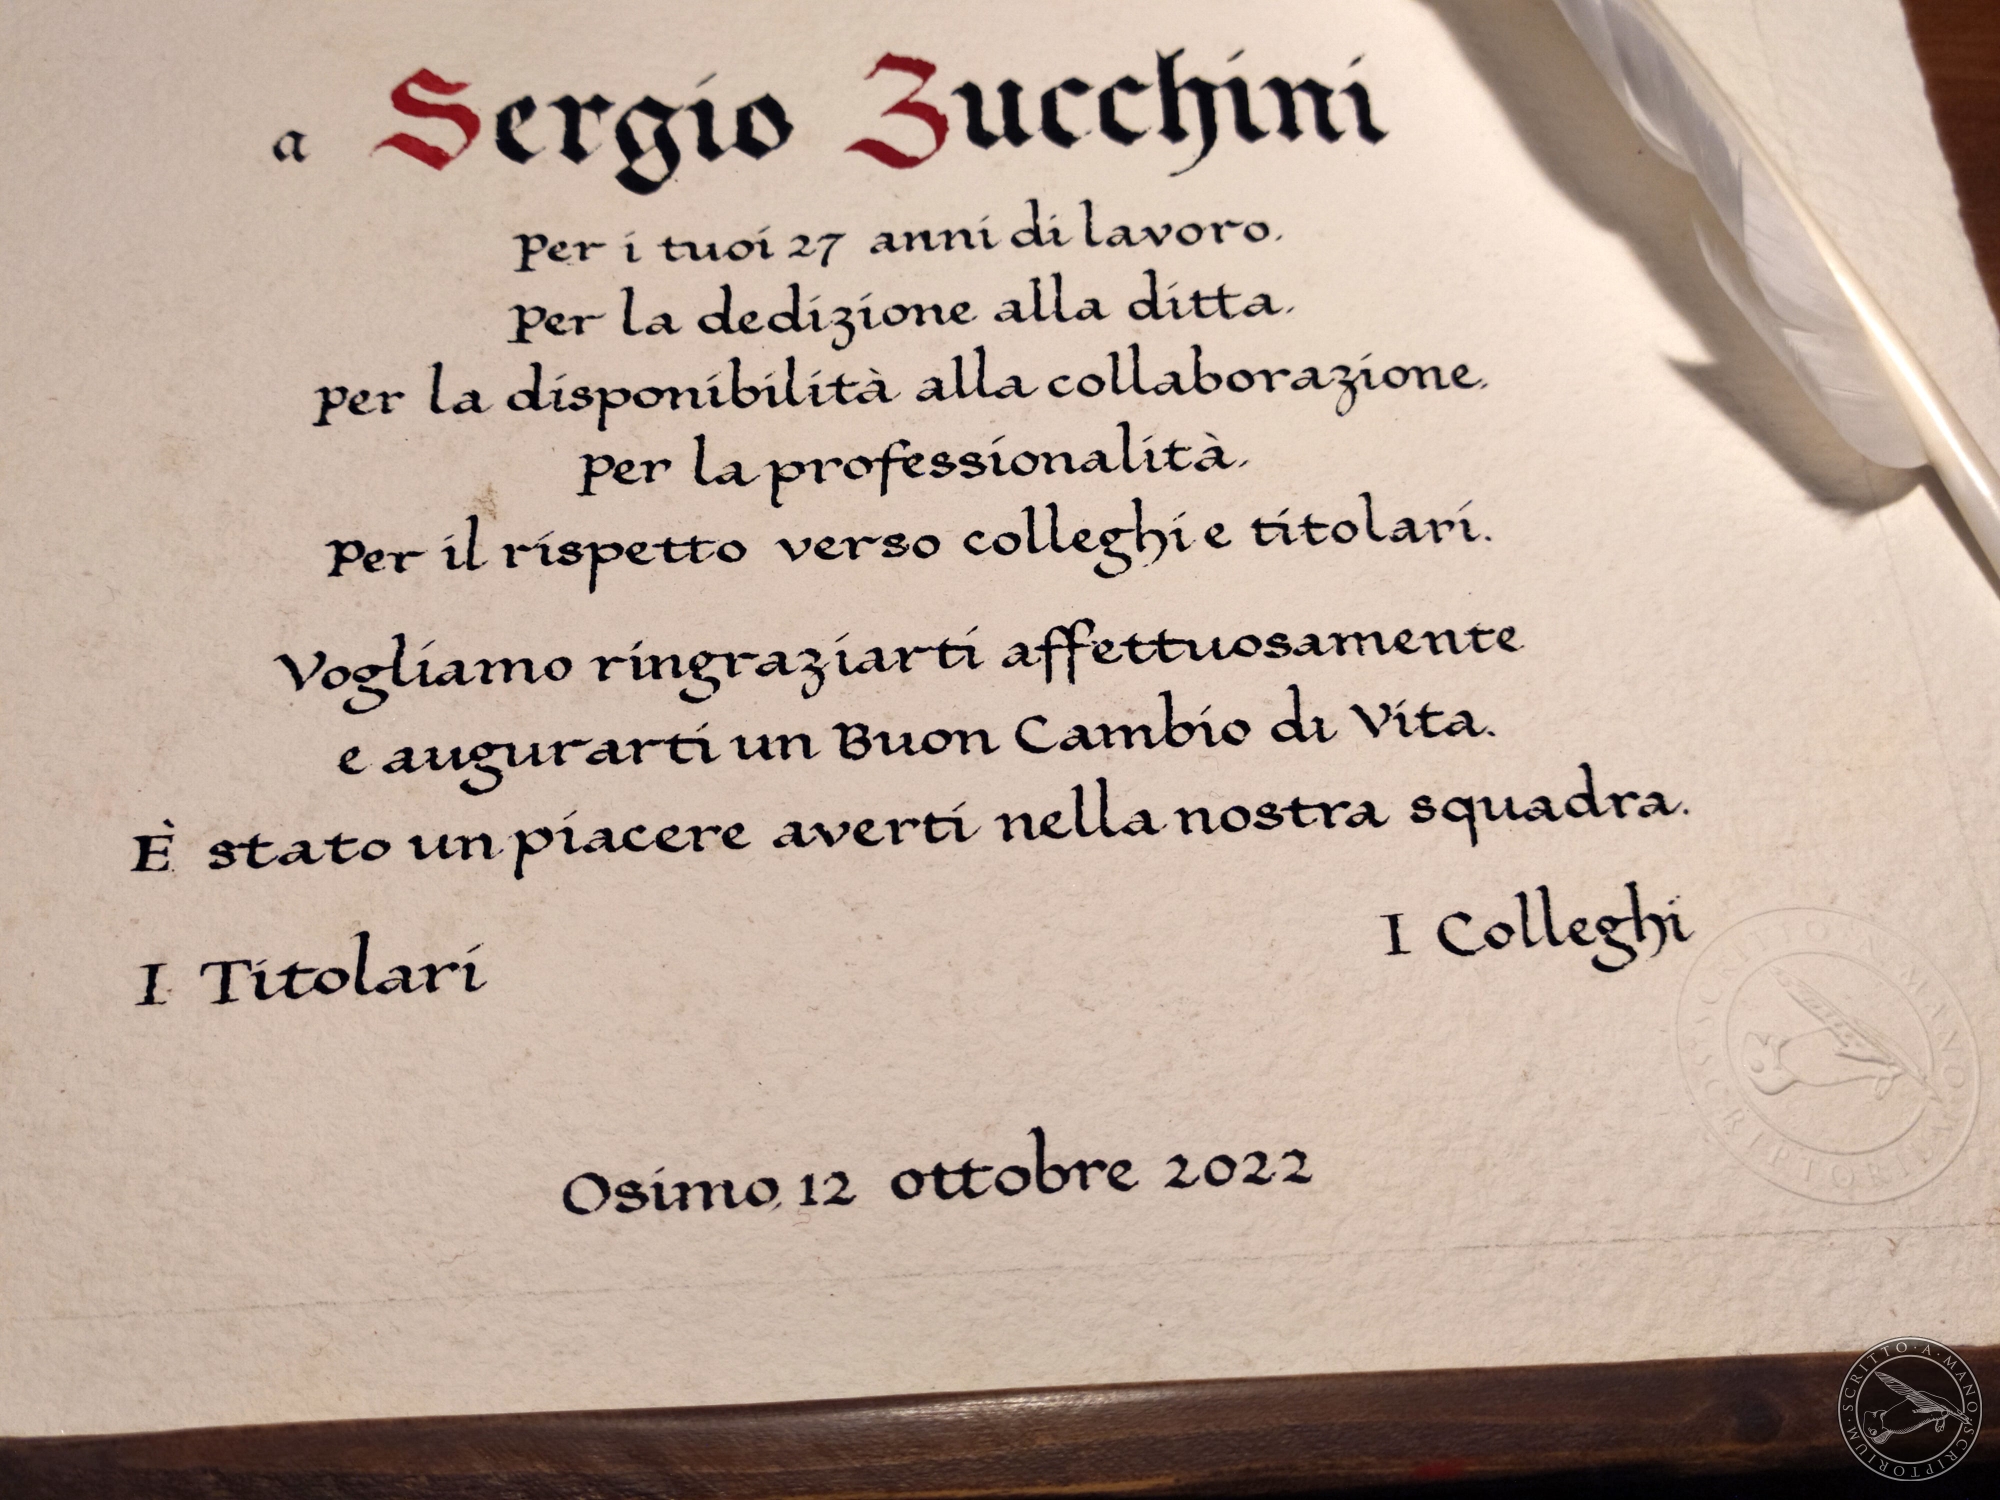 a Sergio Zucchini
Per i tuoi 27 anni di lavoro.
Per la dedizione alla ditta.
per la disponibilità alla collaborazione.
Per la professionalità.
Per il rispetto verso colleghi e titolari.
Vogliamo ringraziarti affettuosamente
e augurarti un Buon Cambio di Vita.
È stato un piacere averti nella nostra squadra.
I Colleghi
I Titolari
Osimo, 12 ottobre 2022
SCRITTO A MANO SCRIPTORIUM
SCRITTO · A · MANO · SCRIPTORIUM ·